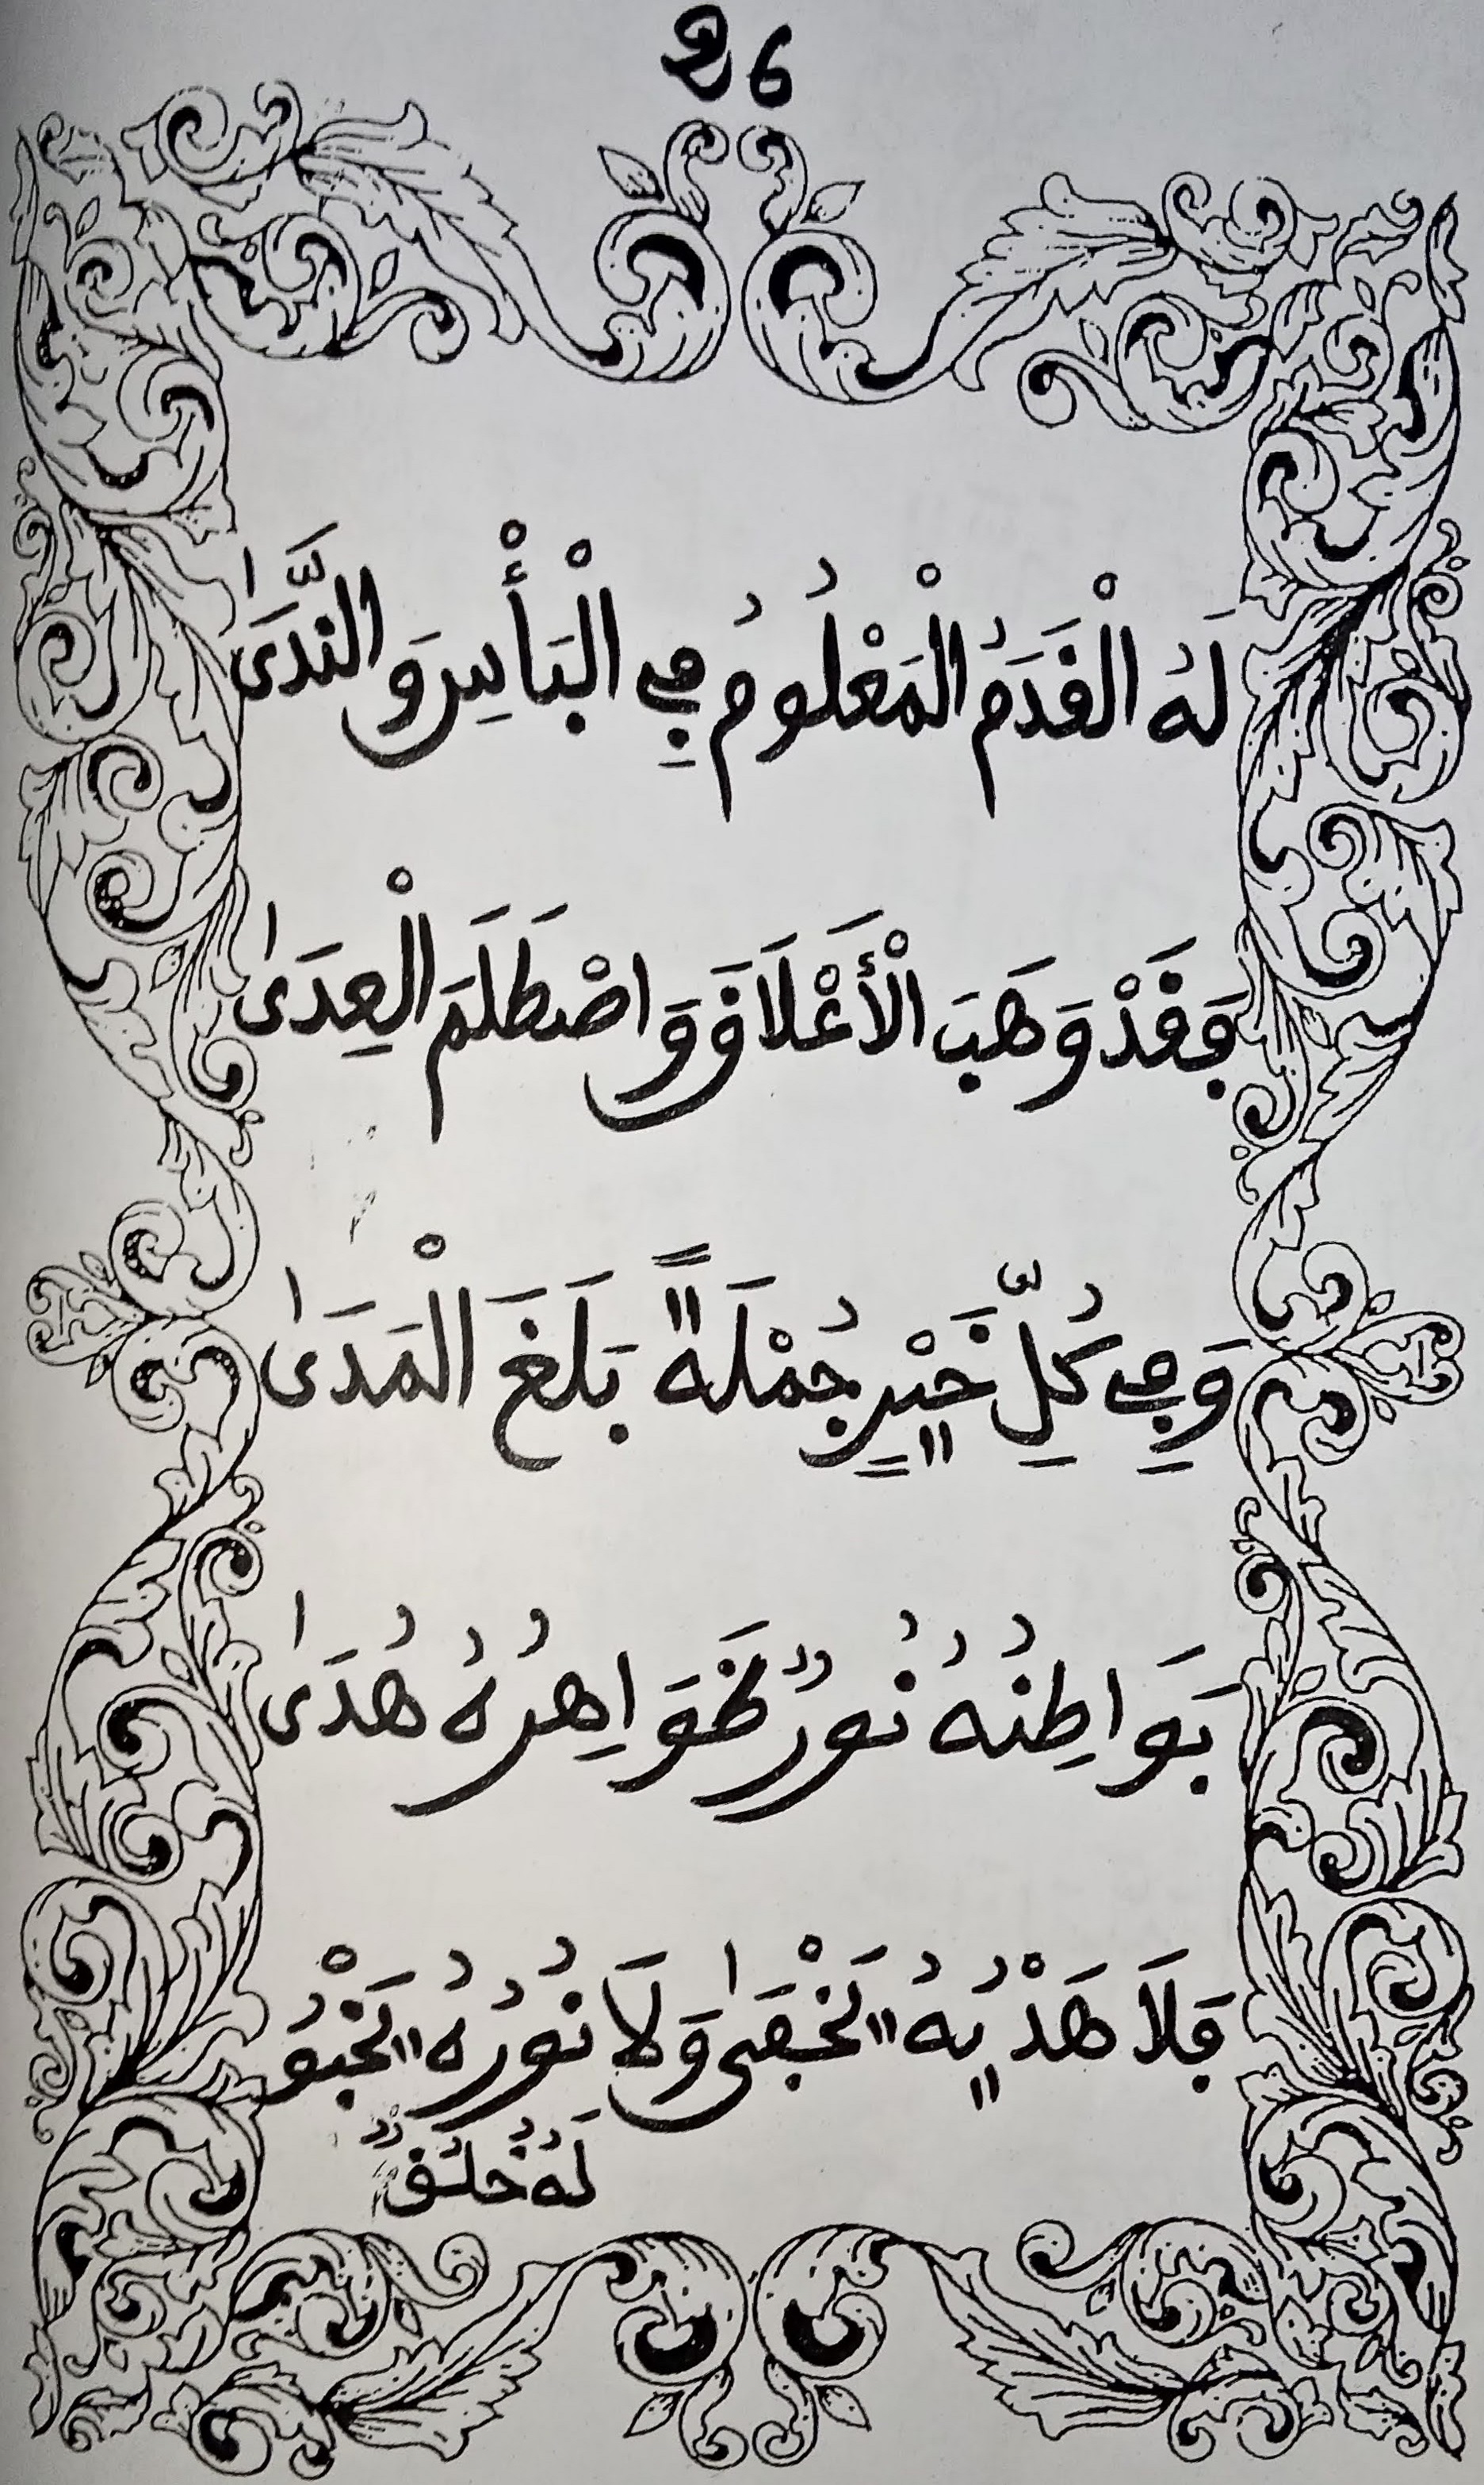 26
لَهُ الْقَدَمُ الْمَعْلُومُ فِي الْبَأْسِ وَالنَّدَىٰ
فَقَدْ وَهَبَ الْأَعْلَاقَ وَاصْطَلَمَ الْعِدَىٰ
وَفِي كُلِّ خَيْرٍ جُمْلَةً بَلَغَ الْمَدَىٰ
بَوَاطِنُهُ نُورٌ ظَوَاهِرُهُ هُدَىٰ
فَلَا هَدْيُهُ يَخْفَىٰ وَلَا نُورُهُ يَخْبُو
لَهُ خُلُقٌ